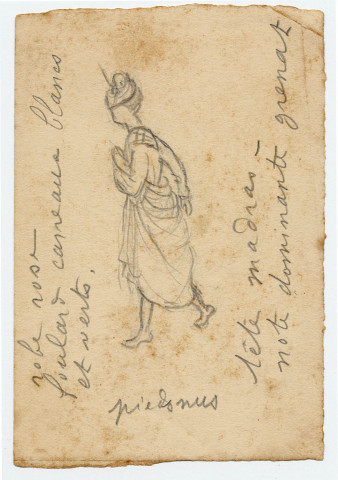 robe rose
foulard carreaux blancs
et verts.
tête madras
note dominante grenat
pieds nus